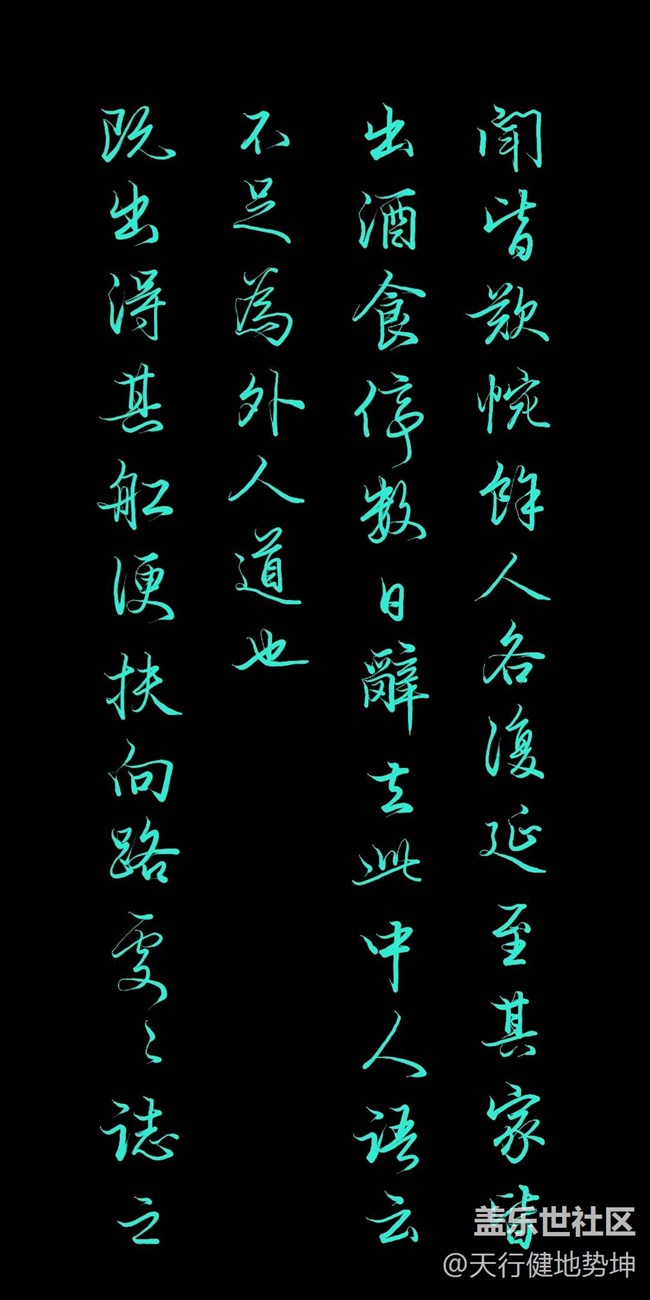 闻皆歎惋馀人各復延至其家皆
出酒食停数日辭去此中人语云
不足為外人道也
既出得其船便扶向路处々誌之
盖乐世社区
@天行健地势坤